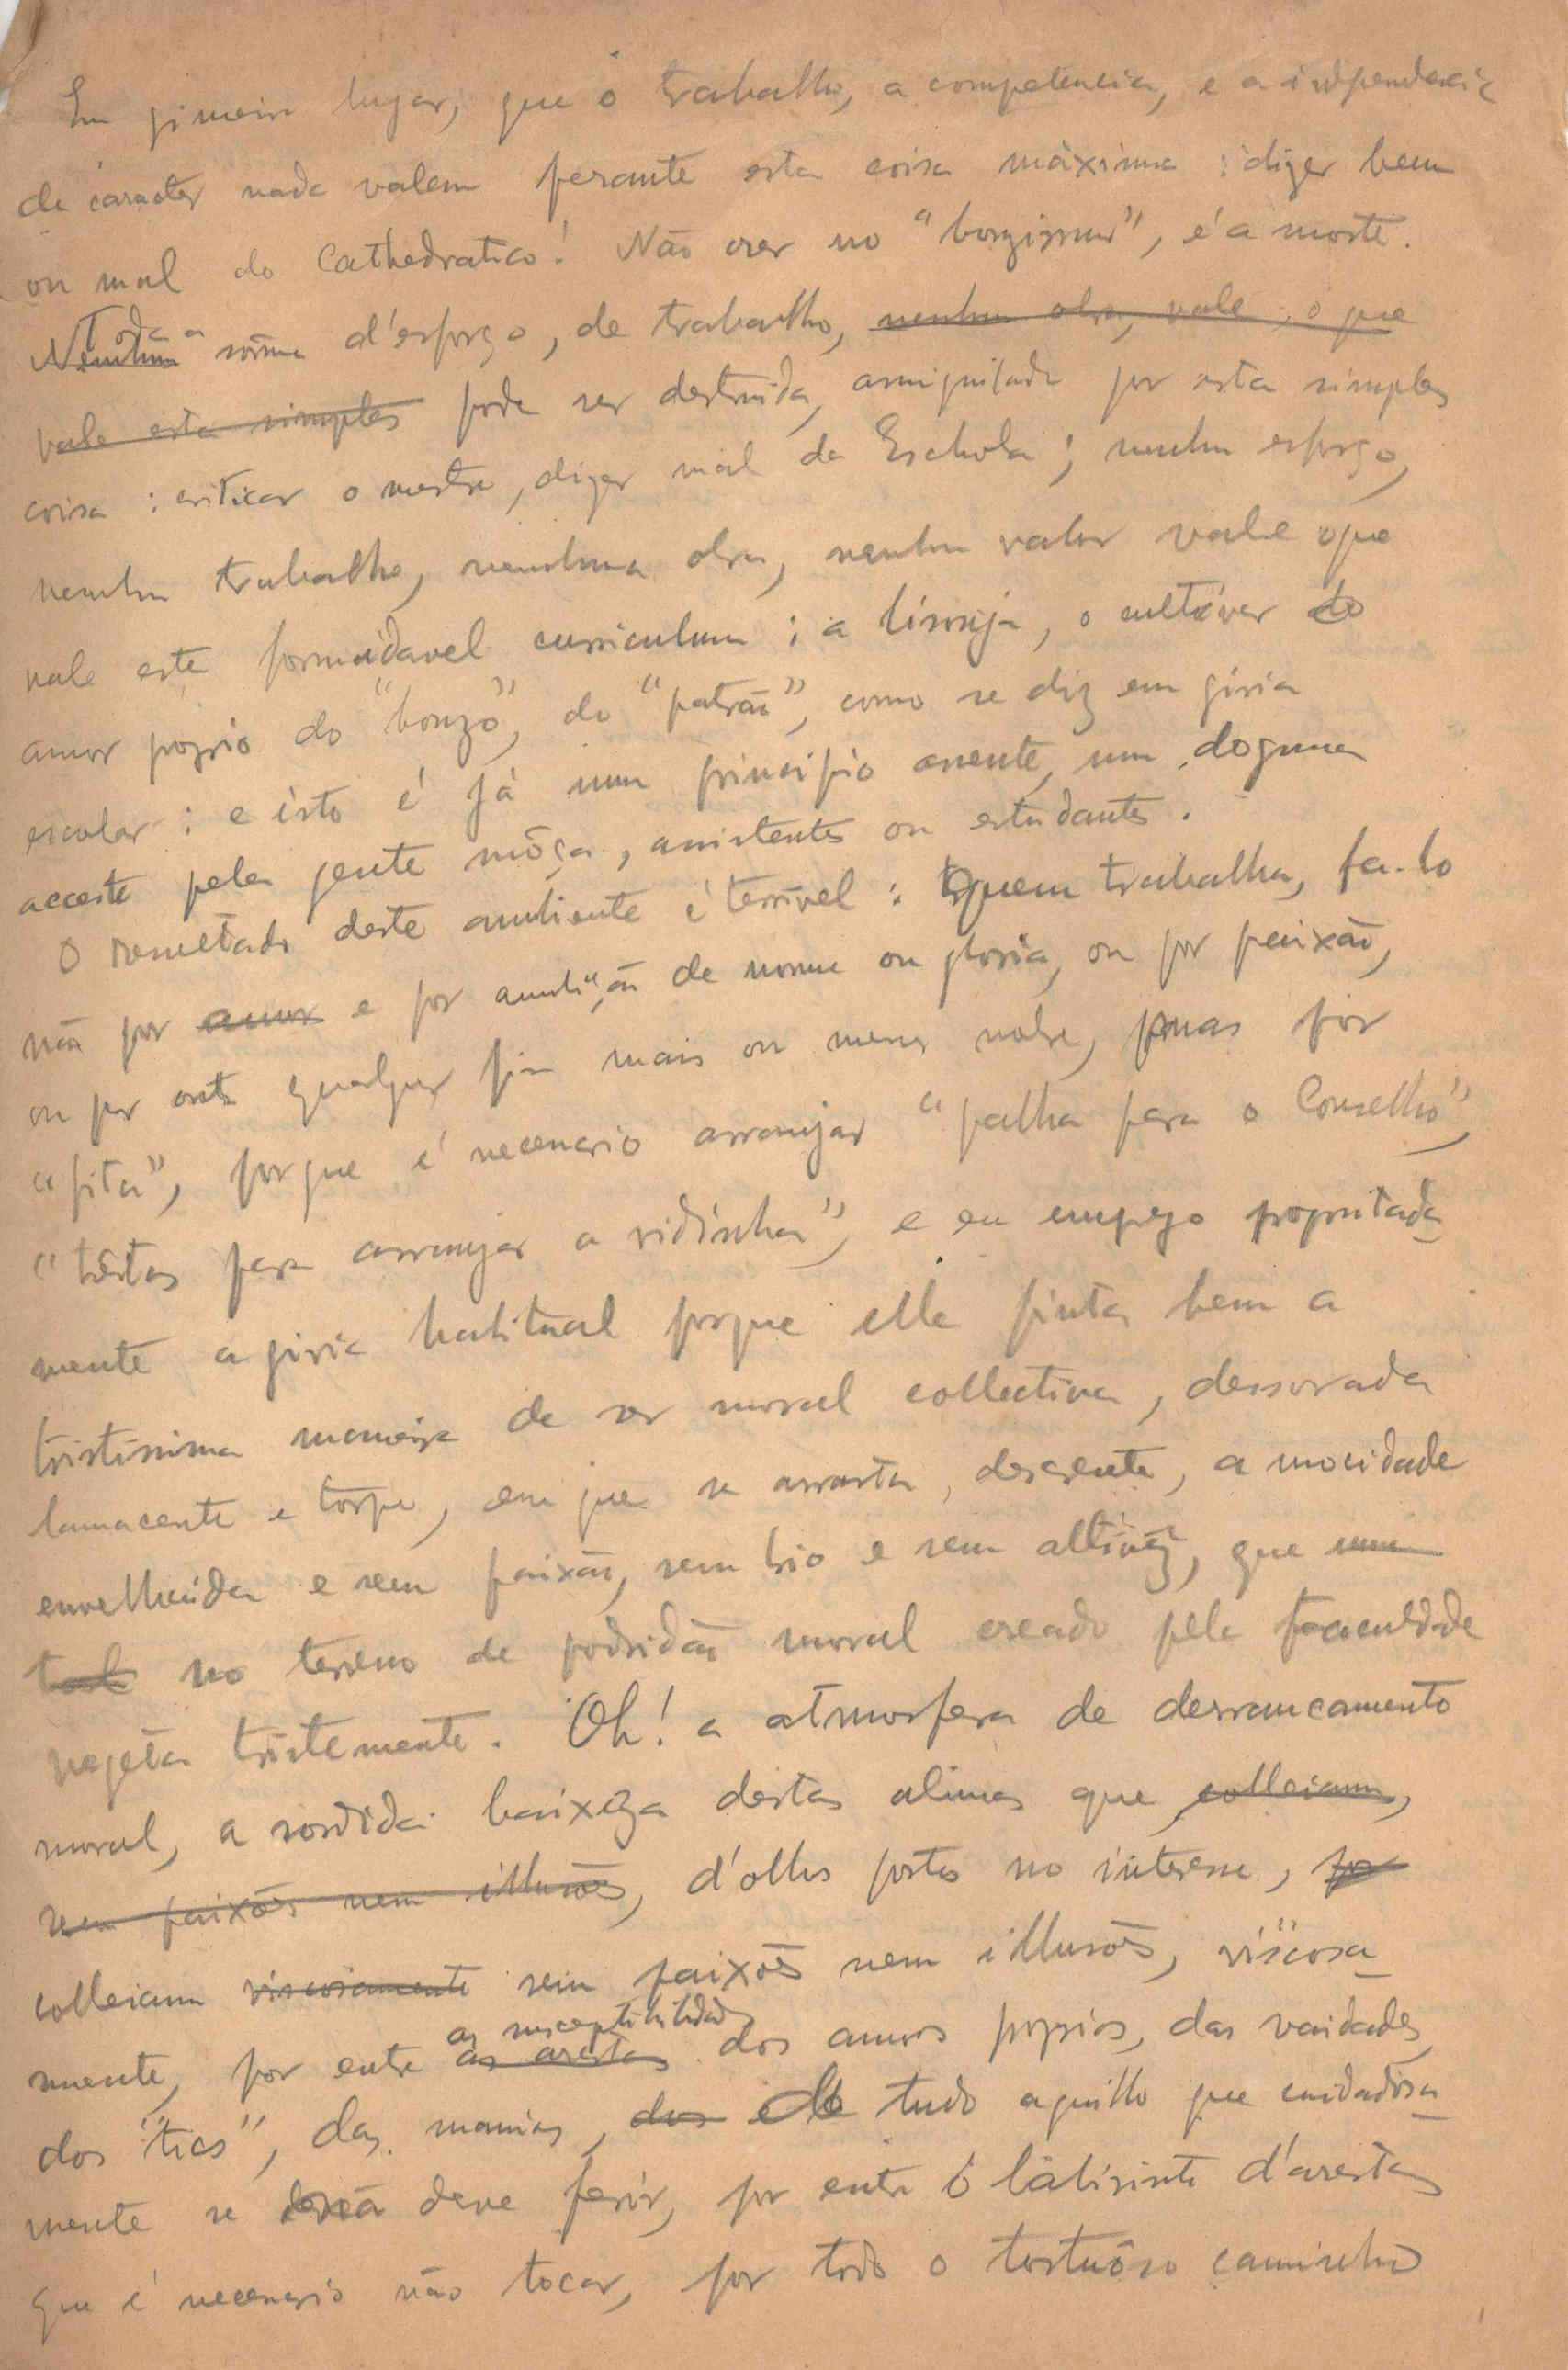 Em primeiro lugar, que o trabalho, a competencia, e a independencia
de caracter nada valem perante esta coisa máxima : dizer bem
ou mal do Cathedratico! Não crer no "bonzismo", é a morte.
Nenhuma Toda a sôma d'esforço, de trabalho, nenhum obra, vale, o que
vale esta simples pode ser destruida, aniquilada por esta simples
coisa : criticar o mestre, dizer mal da Eschola ; nenhum esforço,
nenhum trabalho, nenhuma obra, nenhum valor vale o que
vale este formidavel curriculum : a lisonja, o cultivar do
amor proprio do "bonzo", do "patrão", como se diz em giria
escolar : e isto é já um principio assente, um dogma
acceite pela gente môça, assistentes ou estudantes.
O resultado deste ambiente é terrivel : Quem trabalha, fa-lo
não por amor e por ambição de nome ou gloria, ou por paixão,
ou por outro qualquer fim mais ou menos nobre, mas por
"fita", porque é necessario arranjar "palha para o Conselho",
"têtas para arranjar a vidinha", e eu emprego propositada
mente a giria habitual porque ella pinta bem a
tristissima maneira de ser moral collectiva, dessorada
lamacenta e torpe, em que se arrasta, descrente, a mocidade
envelhecida e sem paixão, sem brio e sem altivêz, que num
tal no terreno de podridão moral creado pela Faculdade
vegéta tristemente. Oh! a atmosfera de desrancamento
moral, a sordida baixeza destas almas que colleiam,
sem paixões nem illusões, d'olhos postos no interesse, por
colleiam viscosamente sem paixões nem illusões, viscosa
mente, por entre as arestas as susceptibilidades dos amores proprios, das vaidades,
dos "tics", das manias, dos de tudo aquillo que cuidadosa
mente se deve ferir, por entre o labirinto d'arestas
que é necessario não tocar, por todo o tortuôso caminho